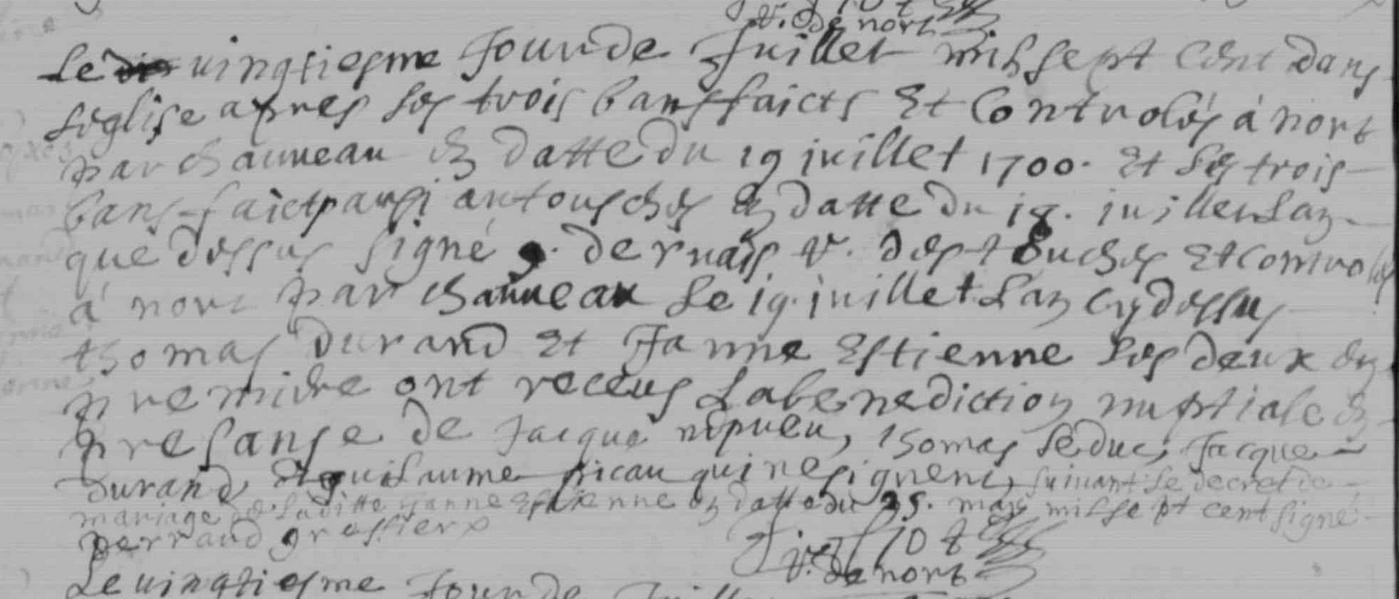 v. de nort
Le vingtiesme Jour de Juillet mil sept cent dans
leglise apres les trois bans faicts Et Controlés à nort
par chauveau en datte du 19 juillet 1700. Et les trois
bans faict pausi autouches en datte du 18. juillet lan
que dessus signé g. dernais v. des touches Et Controlés
à nort par chauveau le 19. juillet lan cy dessus
thomas durand Et Janne Estienne les deux en
premiere ont receus la benediction nuptiale en
presanse de Jacque nepueu, thomas leduc, Jacque
durand, Et guilaume ricau qui ne signent, suivant le decret de
mariage de laditte Janne Estienne en datte du 25. may mil sept cent signé
perraud greffier
v. de nort
Le vingtiesme Jour de Juillet